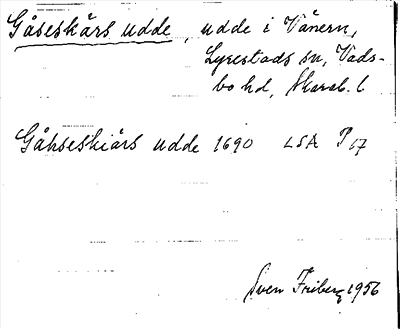 Gåseskärs udde, udde i Vänern,
Lyrestads sn, Vads-
bo hd, Skarab. l
Gåhseskiärs udde 1690 LSA P 17
Sven Friberg 1956